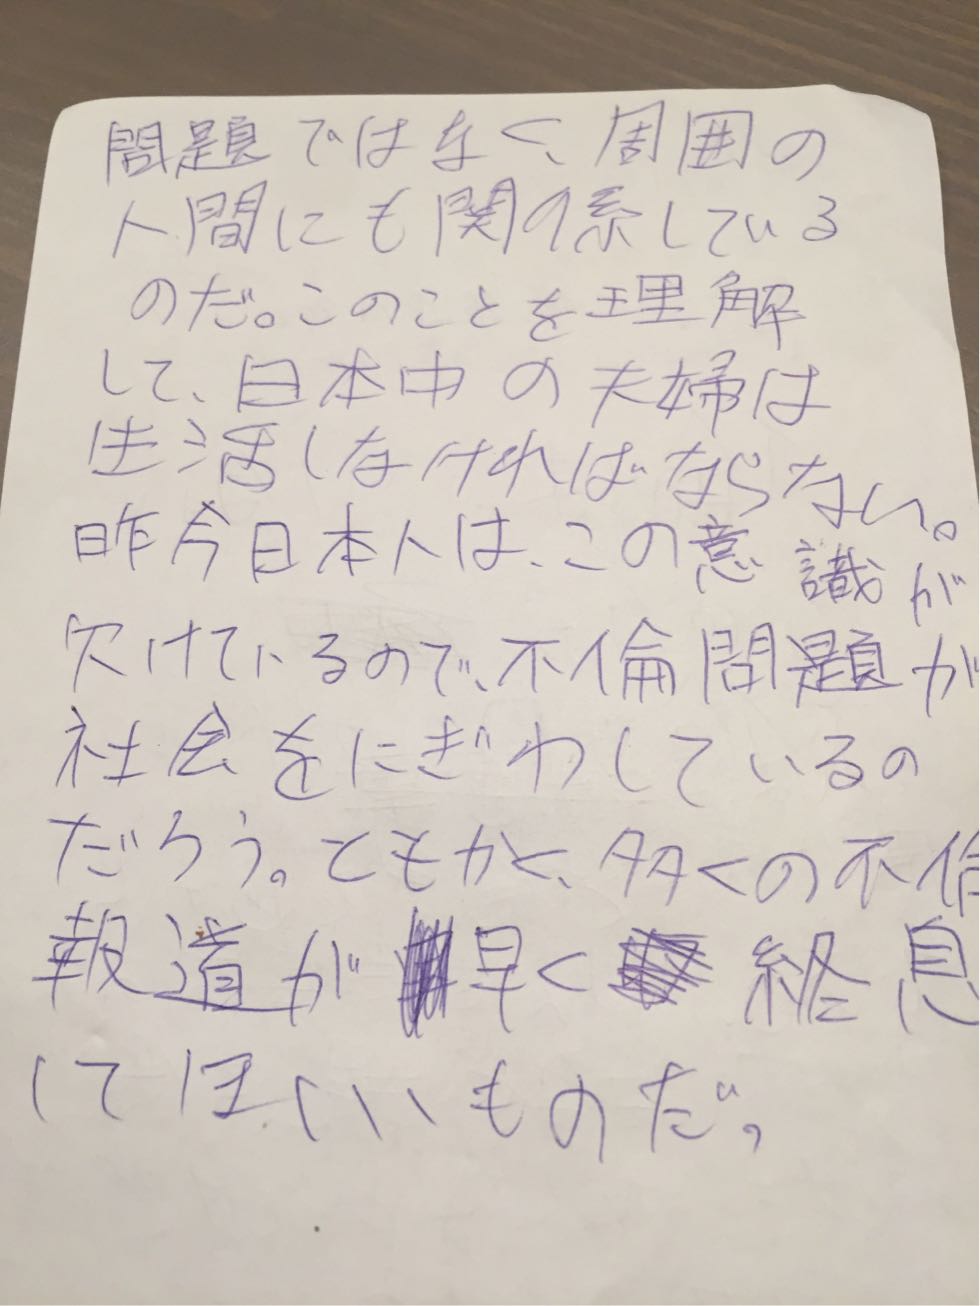 問題ではなく、周囲の
人間にも関係している
のだ。このことを理解
して、日本中の夫婦は
生活しなければならない。
昨今日本人は、この意識が
欠けているので、不倫問題が
社会をにぎわしているの
だろう。ともかく、多くの不倫
報道が早く終息
してほしいものだ。